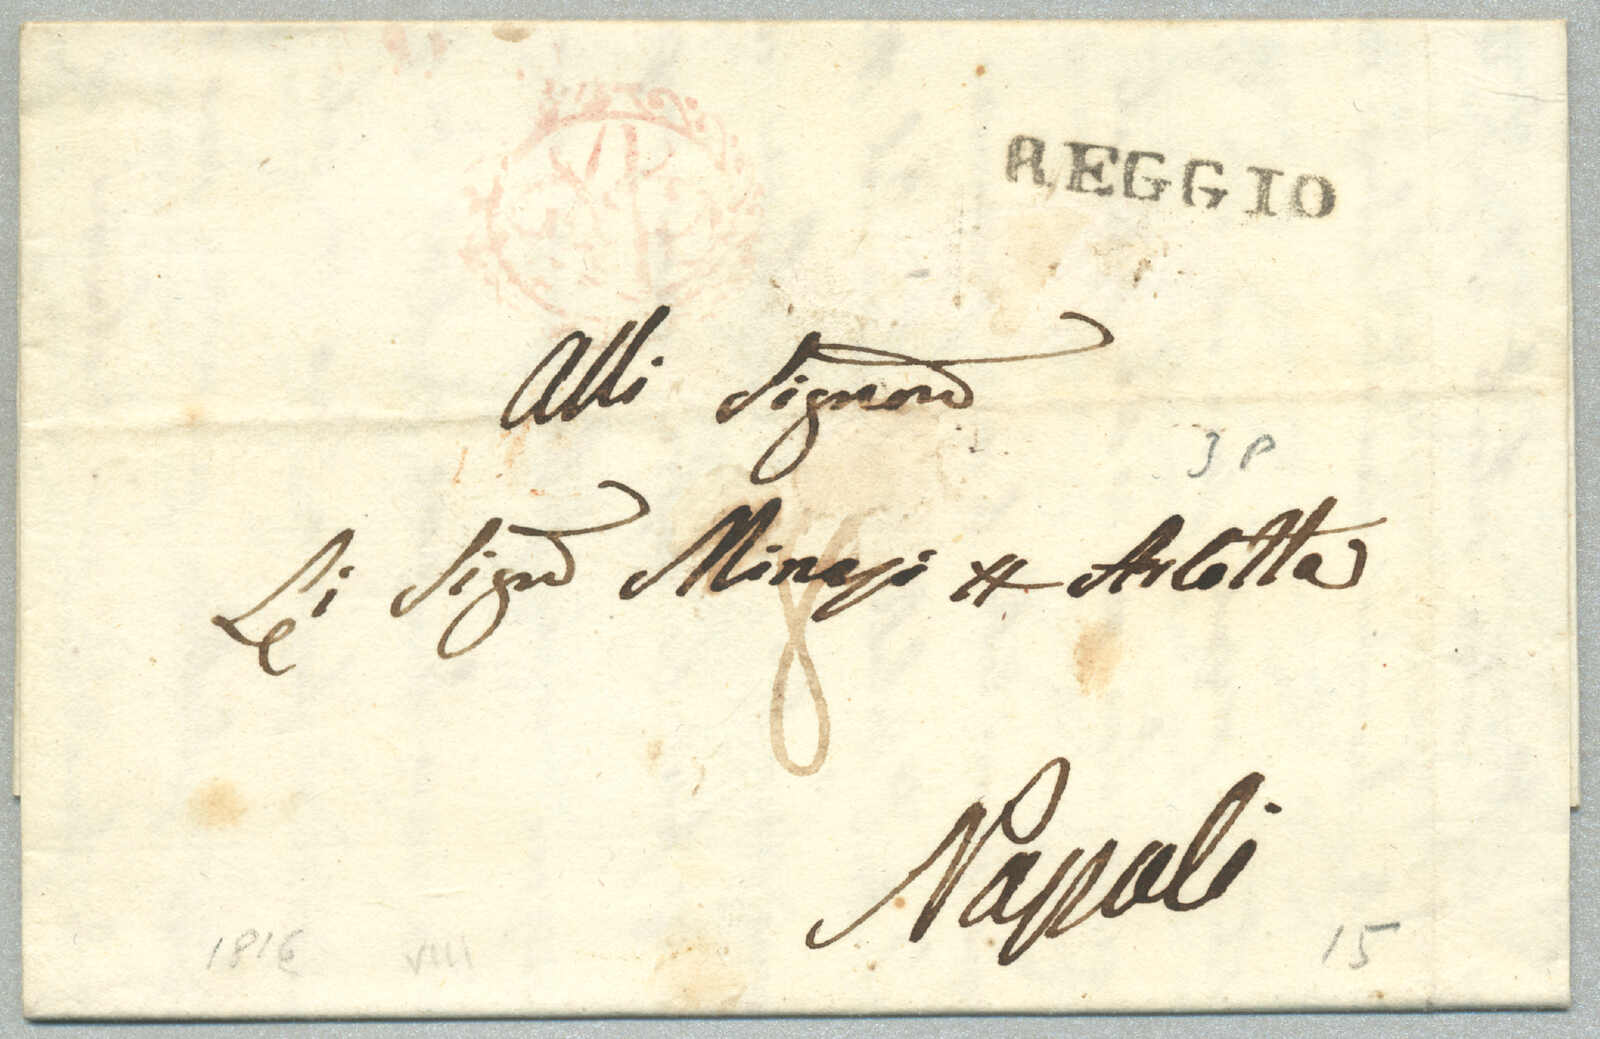 REGGIO
Alli Signori
3 P
Li Sign Minasi Arlotta
8
Napoli
1816 VIII
15